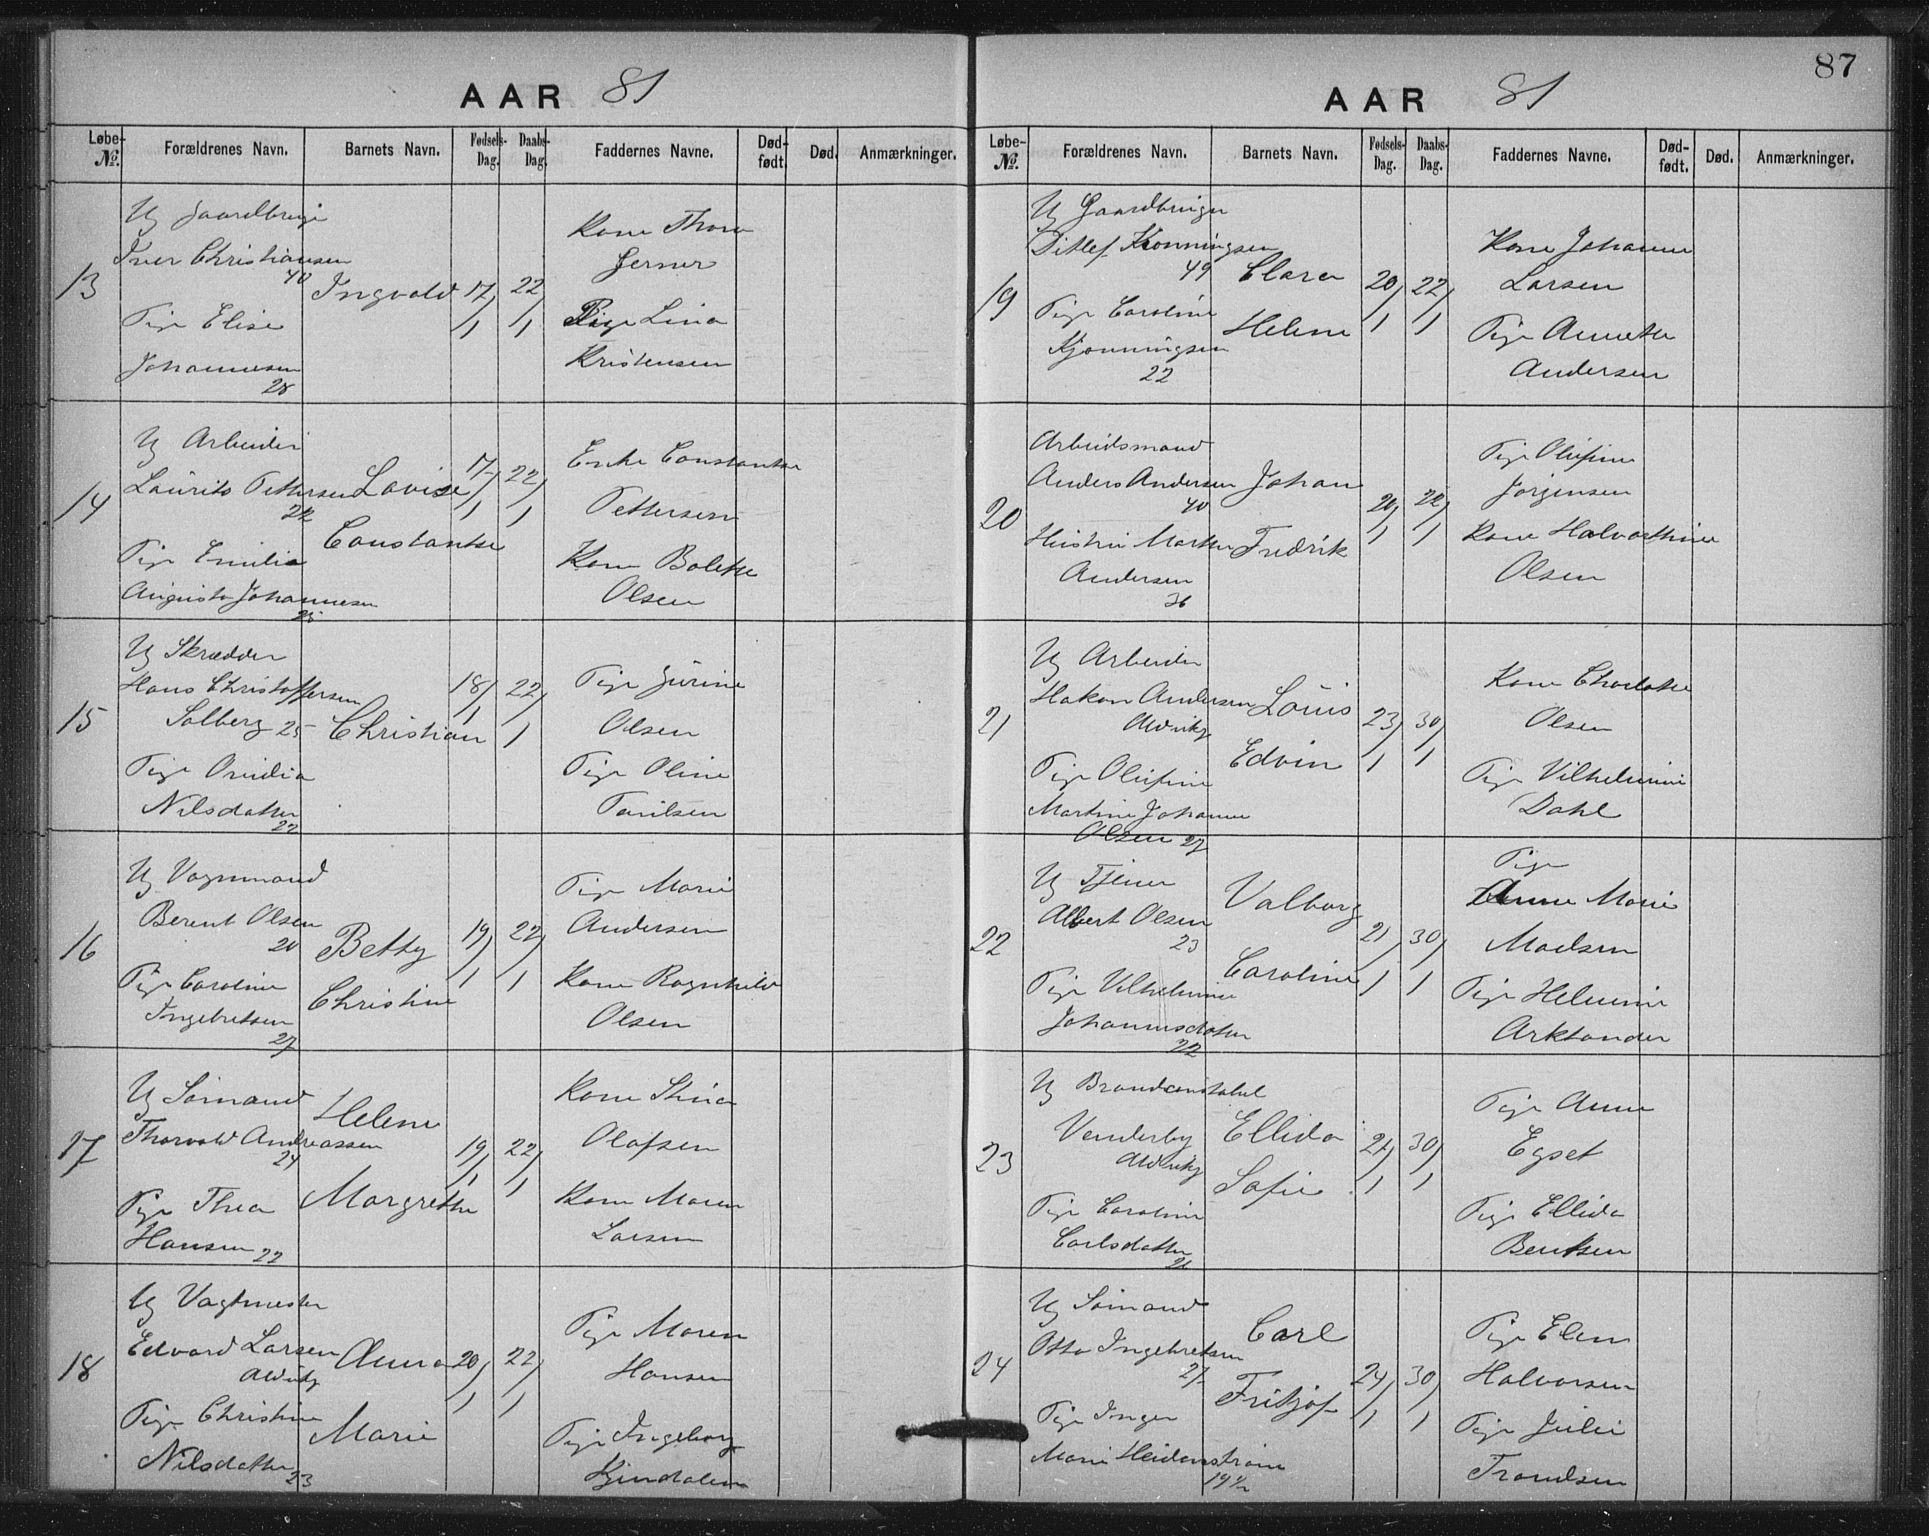 87
AAR 81
Løbe-№. Forældrenes Navn. Barnets Navn. Fødsels-Dag. Daabs-Dag. Faddernes Navne. Død-født. Død. Anmærkninger.
13
Ug Gaardbruger
Iver Christiansen
40
Pige Elise
Johannesen
28
Ingvald
17/1
22/1
Kone Thora
Jerner
Pige Lina
Kristensen
14
Ug Arbeider
Laurits Pettersen
22
Pige Emilie
Augusta Johannesen
25
Lovise
Constantse
17/1
22/1
Enke Constantse
Pettersen
Kone Bolette
Olsen
15
Ug Skrædder
Hans Christoffersen
Solberg 25
Pige Ovidia
Nilsdatter
22
Christian
18/1
22/1
Pige Jurine
Olsen
Pige Oline
16
Ug Vognmand
Berent Olsen
20
Pige Caroline
Ingebretsen
27
Betty
Christine
19/1
22/1
Pige Marie
Andersen
Kone Ragnhild
Olsen
17
Ug Sømand
Thorvald Andreassen
24
Pige Thea
Hansen 22
Helene
Margrethe
19/1
22/1
Kone Stina
Olafsen
Kone Maren
Larsen
18
Ug Vagtmester
Edvard Larsen
Pige Christine
Nilsdatter
23
Anna
Marie
20/1
22/1
Pige Maren
Hansen
Pige Ingeborg
AAR 81
Løbe-№. Forældrenes Navn. Barnets Navn. Fødsels-Dag. Daabs-Dag. Faddernes Navne. Død-født. Død. Anmærkninger.
19
Ug Gaardbruger
Ditlef Kronningsen
49
Pige Caroline
Kjønningsen
22
Clara
Helene
20/1
22/1
Kone Johanne
Larsen
Pige Annette
Andersen
20
Arbeidsmand
Anders Andersen
40
Hustru Marthe
Andersen
36
Johan
Fredrik
20/1
22/1
Pige Olufine
Jørgensen
Kone Halvorthine
Olsen
21
Ug Arbeider
Hakon Andersen
Pige Olufine
Martine Johanne
Olsen 27
Louis
Edvin
23/1
30/1
Kone Charlotte
Olsen
Pige Vilhelmine
Dahl
22
Ug Tjener
Albert Olsen
23
Pige Vilhelmine
Johannesdatter
22
Valborg
Caroline
21/1
30/1
Pige
Anne Marie
Madsen
Pige Helmine
Arktander
23
Ug Brandconstabel
Venderby
Pige Caroline
Carlsdatter
Ellida
Sofie
21/1
30/1
Pige Anne
Egset
Pige Ellida
Bentsen
24
Ug Sømand
Otto Ingebretsen
27
Pige Inger
Marie Heidenstrøm
19½
Carl
Fritjof
24/1
30/1
Pige Elen
Halvorsen
Pige Julie
Trondsen